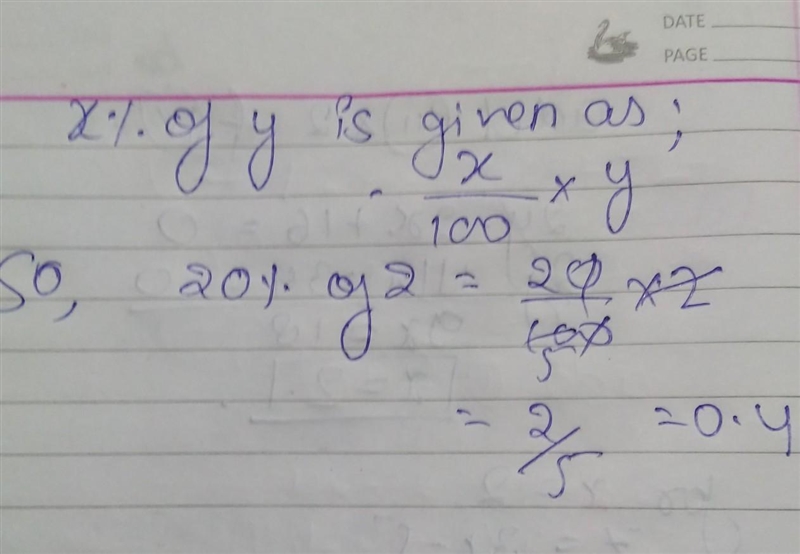 DATE
PAGE
x% of y is given as;
x/100 × y
So, 20% of 2 = 20/100 × 2
5
= 2/5 = 0.4